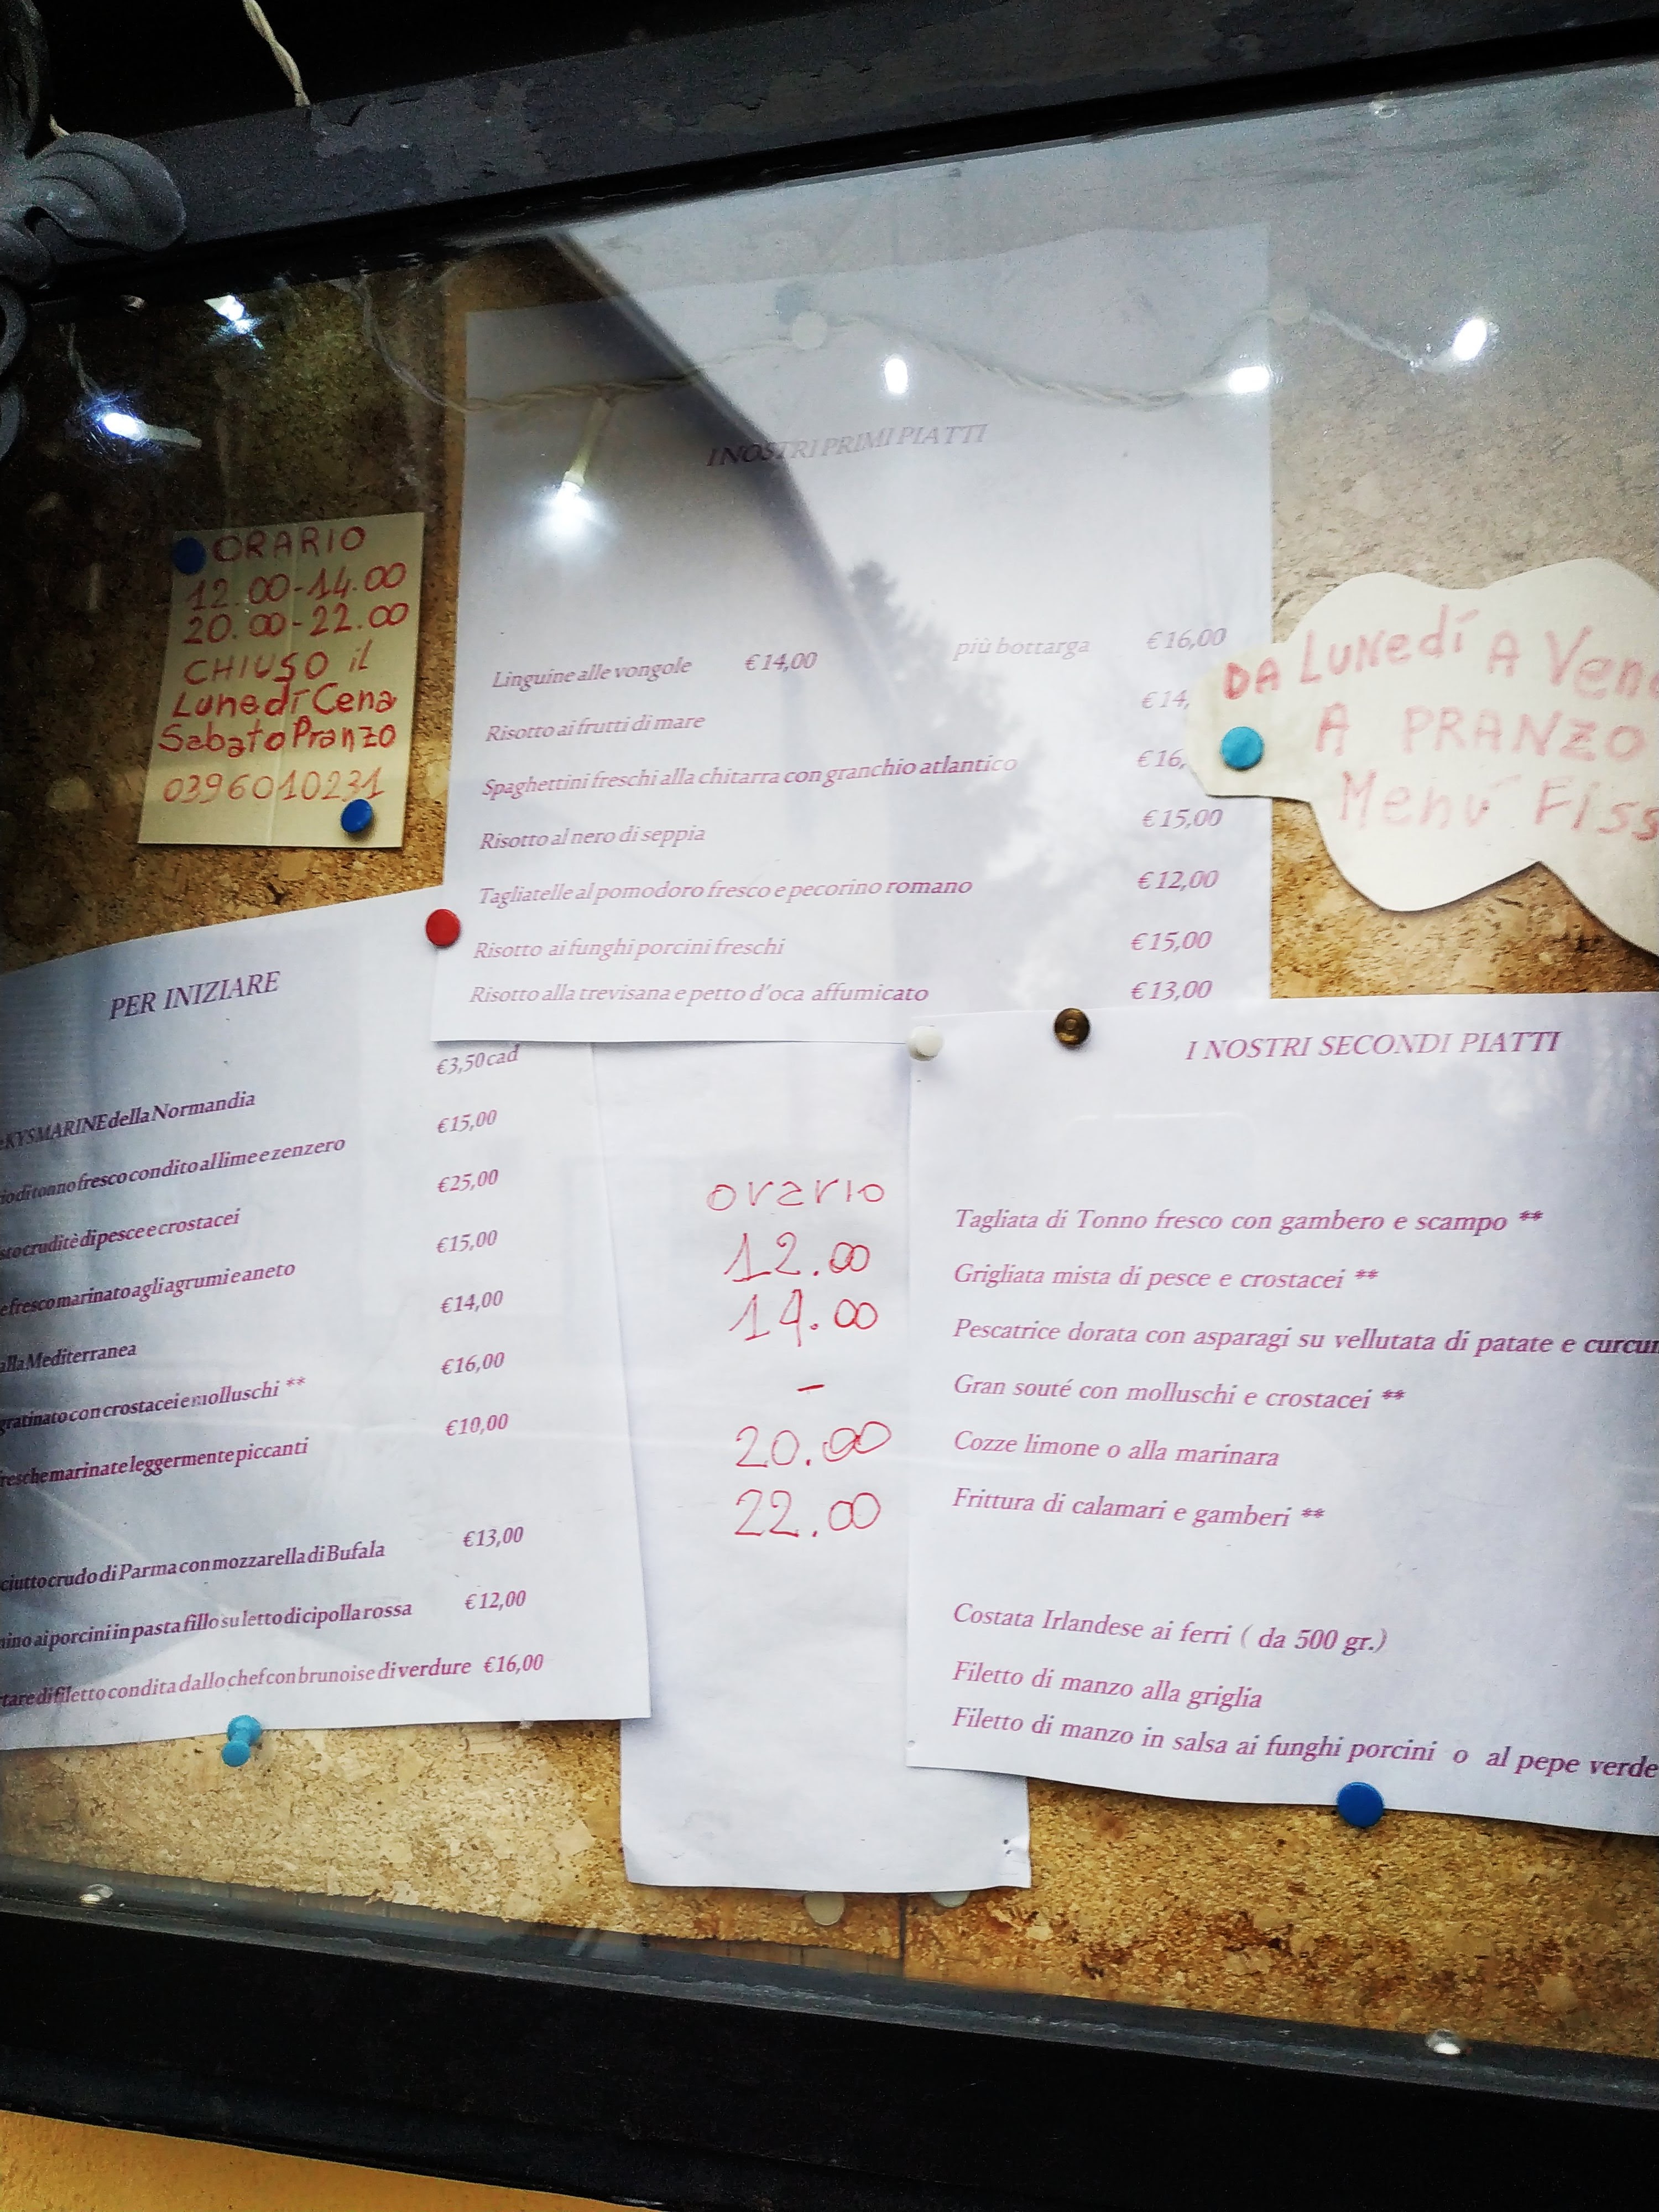 ORARIO
12.00-14.00
20.00-22.00
CHIUSO il
Lunedí Cena
Sabato Pranzo
0396010231
I NOSTRI PRIMI PIATTI
Linguine alle vongole €14,00 più bottarga €16,00
Risotto ai frutti di mare €14,
Spaghettini freschi alla chitarra con granchio atlantico €16,
Risotto al nero di seppia €15,00
Tagliatelle al pomodoro fresco e pecorino romano €12,00
Risotto ai funghi porcini freschi €15,00
Risotto alla trevisana e petto d'oca affumicato €13,00
DA LUNedí A Ven
A PRANZO
Menú Fiss
PER INIZIARE
KYSMARINE della Normandia €3,50 cad
di tonno fresco condito al lime e zenzero €15,00
cruditè di pesce e crostacei €25,00
fresco marinato agli agrumi e aneto €15,00
alla Mediterranea €14,00
gratinato con crostacei e molluschi ** €16,00
fresche marinate leggermente piccanti €10,00
crudo di Parma con mozzarella di Bufala €13,00
ai porcini in pasta fillo su letto di cipolla rossa €12,00
di filetto condita dallo chef con brunoise di verdure €16,00
orario
12.00
14.00
-
20.00
22.00
I NOSTRI SECONDI PIATTI
Tagliata di Tonno fresco con gambero e scampo **
Grigliata mista di pesce e crostacei **
Pescatrice dorata con asparagi su vellutata di patate e curcu
Gran souté con molluschi e crostacei **
Cozze limone o alla marinara
Frittura di calamari e gamberi **
Costata Irlandese ai ferri ( da 500 gr.)
Filetto di manzo alla griglia
Filetto di manzo in salsa ai funghi porcini o al pepe verde